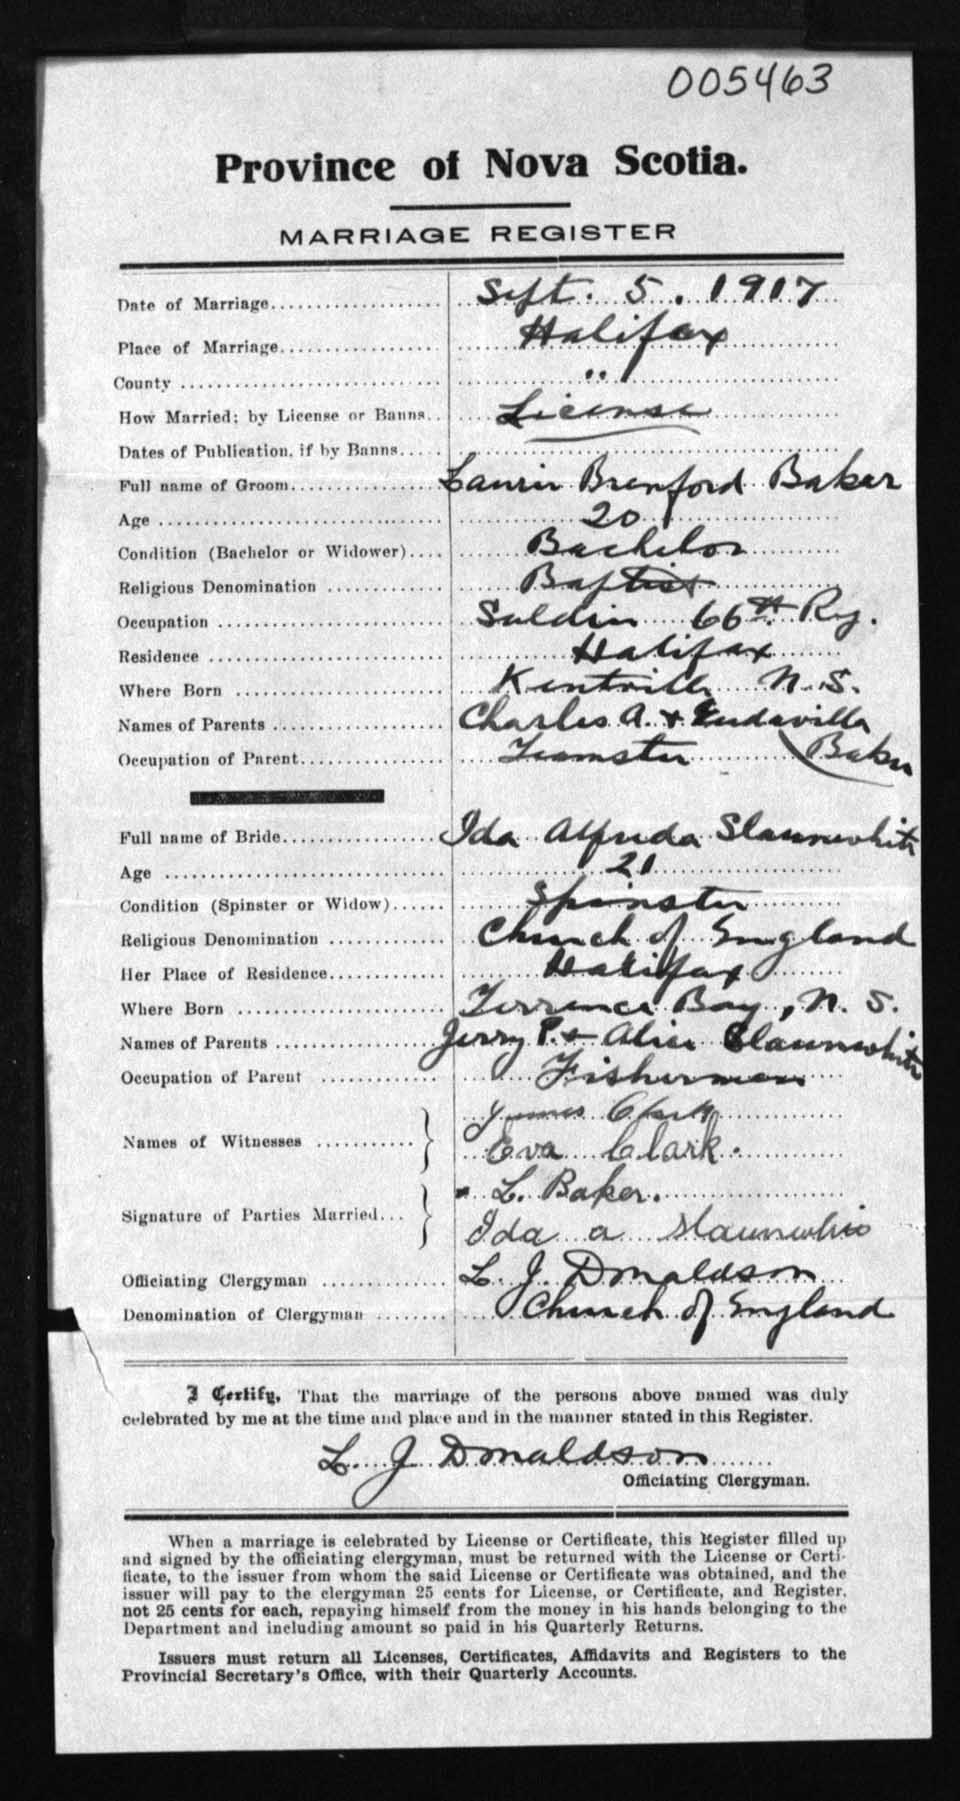 005463
Province of Nova Scotia.
MARRIAGE REGISTER
Date of Marriage.................... Sept. 5. 1917
Place of Marriage.................... Halifax
County .................... "
How Married; by License or Banns.. License
Dates of Publication, if by Banns.....
Full name of Groom................ Laurie Brenford Baker
Age .................... 20
Condition (Bachelor or Widower).... Bachelor
Religious Denomination ............ Baptist
Occupation .................... Soldier 66th Rg.
Residence .................... Halifax
Where Born .................... Kentville N.S.
Names of Parents .................... Charles A. +
Occupation of Parent............... Teamster Baker
Full name of Bride................ Ida Alfreda Slaunwhite
Age .................... 21
Condition (Spinster or Widow)...... Spinster
Religious Denomination ............ Church of England
Her Place of Residence............. Halifax
Where Born .................... Terrence Bay, N. S.
Names of Parents .................... Jerry P. + Alice Slaunwhite
Occupation of Parent ............ Fisherman
Names of Witnesses .......... } James Clark
Eva Clark.
Signature of Parties Married... } L. Baker.
Ida a Slaunwhite
Officiating Clergyman ............ L. J. Donaldson
Denomination of Clergyman ........ Church of England
I Certify, That the marriage of the persons above named was duly
celebrated by me at the time and place and in the manner stated in this Register.
L. J Donaldson
Officiating Clergyman.
When a marriage is celebrated by License or Certificate, this Register filled up
and signed by the officiating clergyman, must be returned with the License or Certi-
ficate, to the issuer from whom the said License or Certificate was obtained, and the
issuer will pay to the clergyman 25 cents for License, or Certificate, and Register,
not 25 cents for each, repaying himself from the money in his hands belonging to the
Department and including amount so paid in his Quarterly Returns.
Issuers must return all Licenses, Certificates, Affidavits and Registers to the
Provincial Secretary's Office, with their Quarterly Accounts.